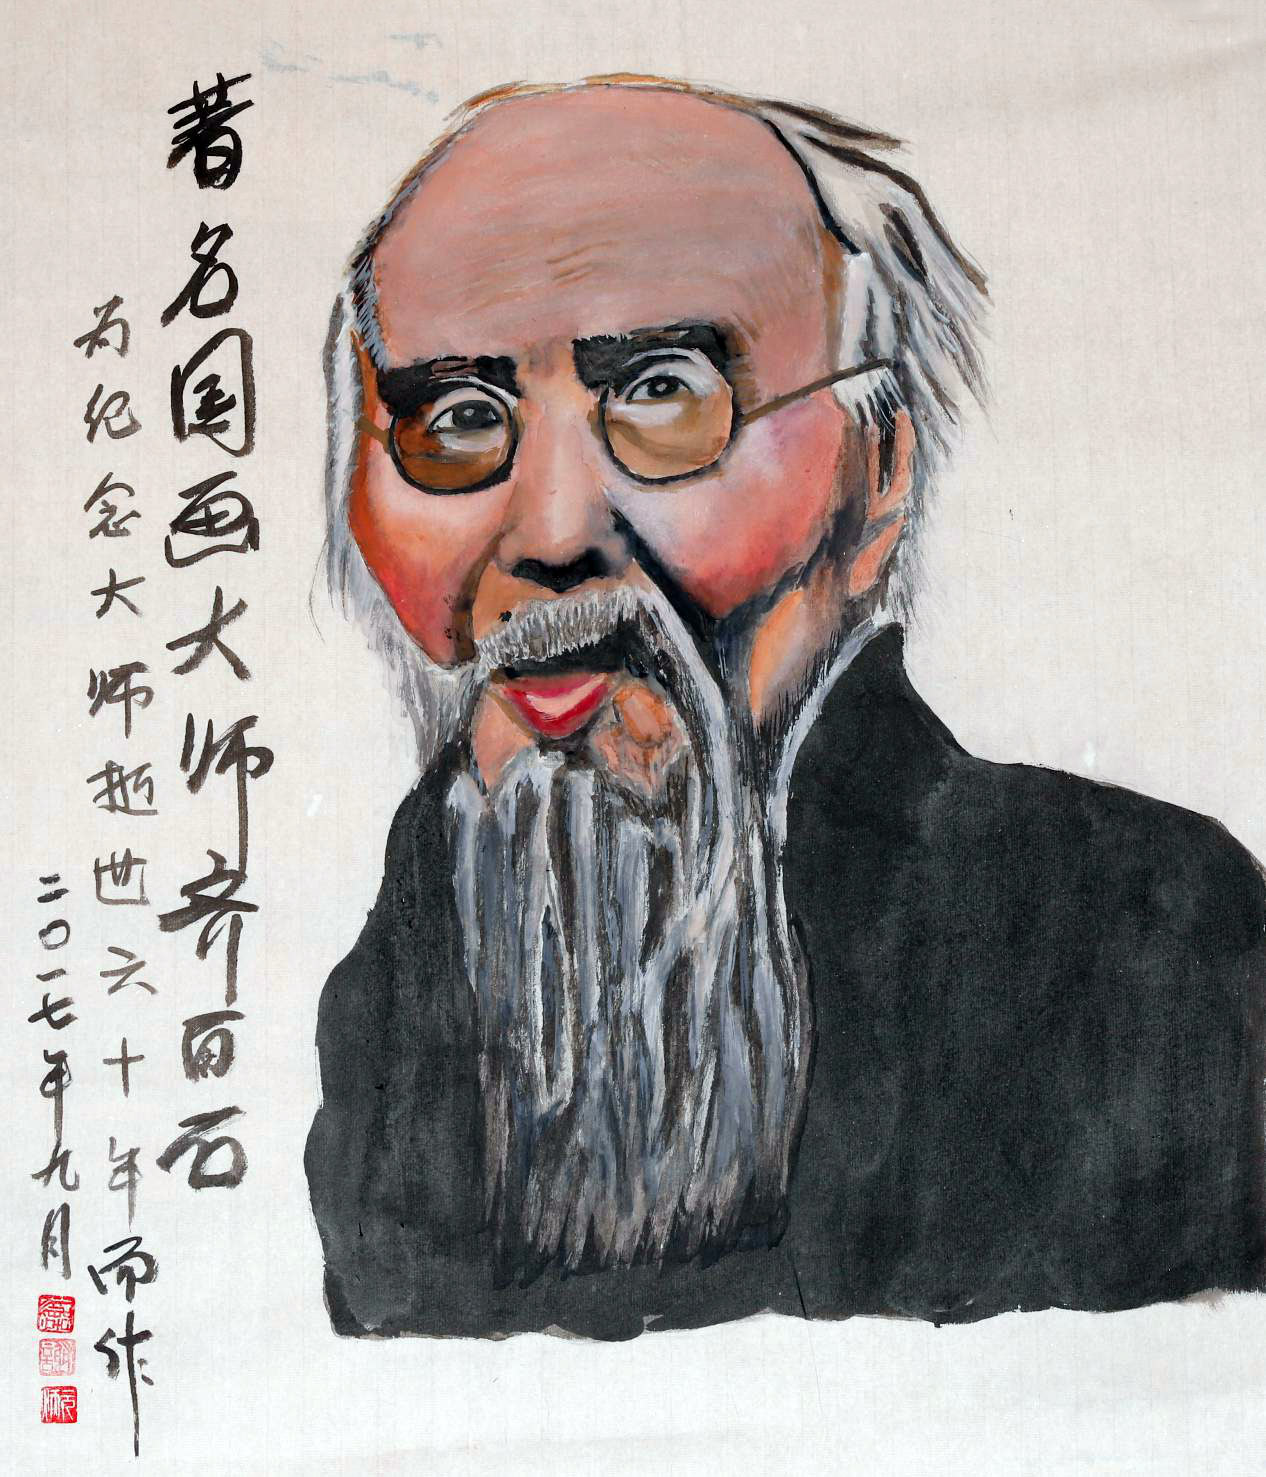 著名国画大师齐白石
为纪念大师逝世六十年而作
二〇一七年九月